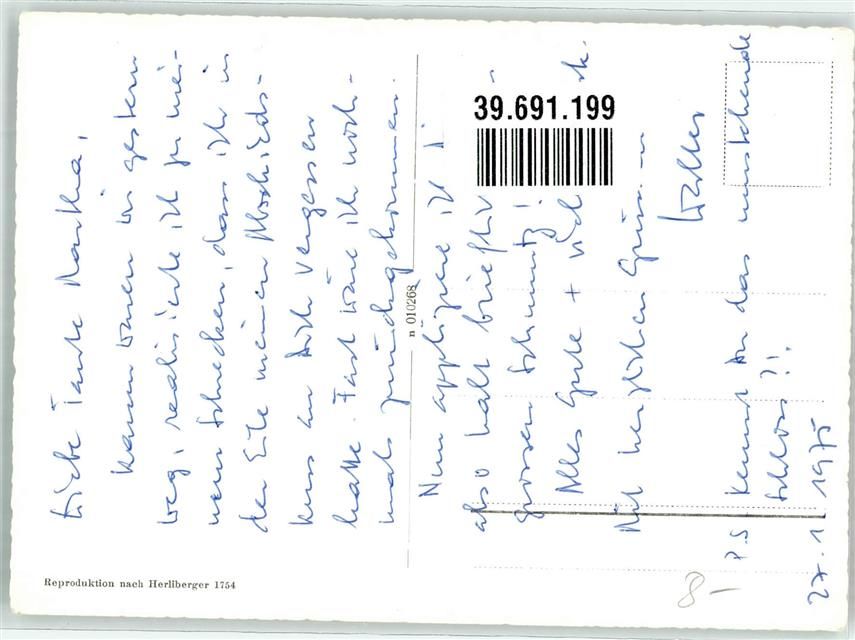 Liebe Tante Martha,
Kaum waren wir gestern
weg, realisierte ich zu mei-
nem Schrecken, dass ich in
der Eile meinen Abschieds-
kuss an Dich vergessen
hatte. Fast wäre ich noch-
mals zurückgekommen.
Nun appliziere ich D
also halt brieflich
grossen Schmutz!
Alles Gute +
Mit herzlichen Grüssen
Walter
P.S. Kennst Du das umstehende
Schloss?!.
27. 1. 1975
39.691.199
n 010268
Reproduktion nach Herrliberger 1754
8.-